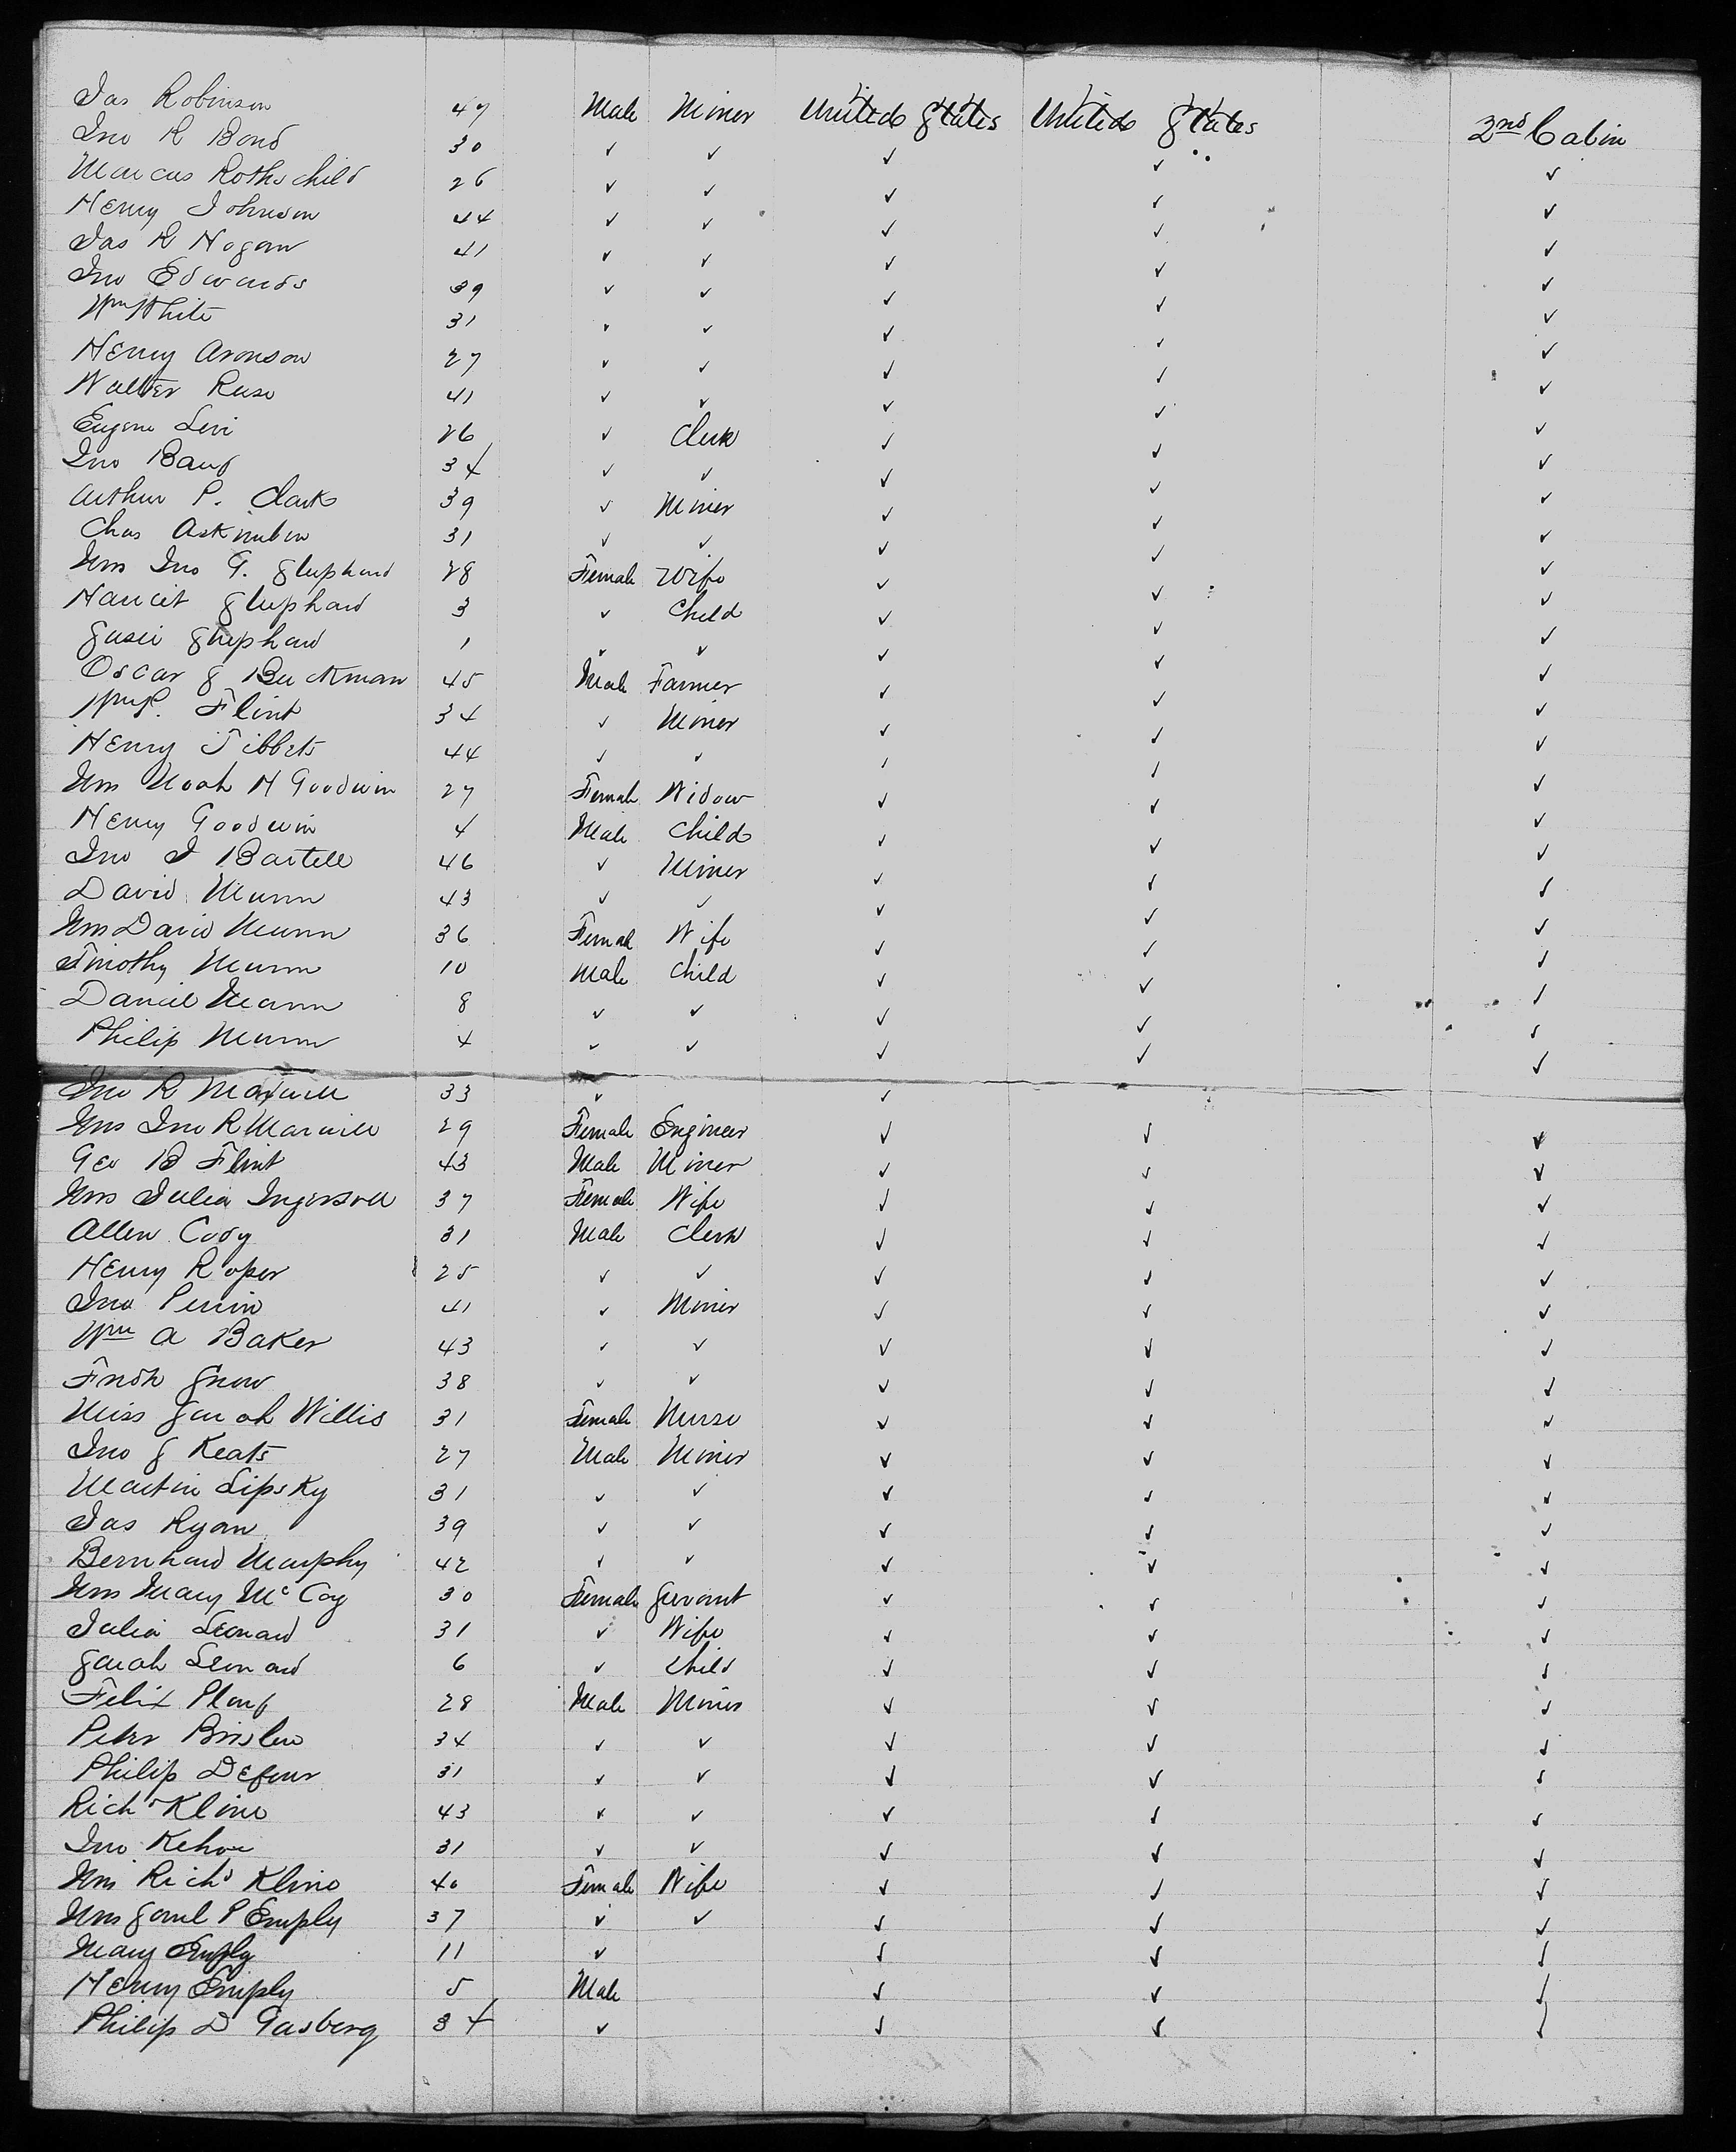 Jas Robinson 47 Male Miner United States United States 2nd Cabin
Jno R Bond 30 ✓ ✓ ✓ ✓ ✓
Marcus Rothschild 26 ✓ ✓ ✓ ✓ ✓
Henry Johnson 44 ✓ ✓ ✓ ✓ ✓
Jas R Hogan 41 ✓ ✓ ✓ ✓ ✓
Jno Edwards 39 ✓ ✓ ✓ ✓ ✓
Wm White 31 ✓ ✓ ✓ ✓ ✓
Henry Aronson 27 ✓ ✓ ✓ ✓ ✓
Walter Ruse 41 ✓ ✓ ✓ ✓ ✓
Eugene Levi 26 ✓ Clerk ✓ ✓ ✓
Jno 34 ✓ ✓ ✓ ✓ ✓
Arthur P. Clark 39 ✓ Miner ✓ ✓ ✓
Chas 31 ✓ ✓ ✓ ✓ ✓
Mrs Jno G. Shephard 28 Female Wife ✓ ✓ ✓
Shephard 3 ✓ Child ✓ ✓ ✓
Susie Shephard 1 ✓ ✓ ✓ ✓ ✓
Oscar S Buckman 45 Male Farmer ✓ ✓ ✓
Wm S. Flint 34 ✓ Miner ✓ ✓ ✓
Henry Tibbets 44 ✓ ✓ ✓ ✓ ✓
Mrs Noah H Goodwin 27 Female Widow ✓ ✓ ✓
Henry Goodwin 4 Male Child ✓ ✓ ✓
Jno J Bartell 46 ✓ Miner ✓ ✓ ✓
David Munn 43 ✓ ✓ ✓ ✓ ✓
Mrs David Munn 36 Female Wife ✓ ✓ ✓
Timothy Munn 10 Male Child ✓ ✓ ✓
Daniel Munn 8 ✓ ✓ ✓ ✓ ✓
Philip Munn 4 ✓ ✓ ✓ ✓ ✓
Jno R Maxwell 33 ✓ ✓
Mrs Jno R Maxwell 29 Female Engineer ✓ ✓ ✓
Geo B Flint 43 Male Miner ✓ ✓ ✓
Mrs Julia Ingersoll 37 Female Wife ✓ ✓ ✓
Allen Cody 31 Male Clerk ✓ ✓ ✓
Henry Roper 25 ✓ ✓ ✓ ✓ ✓
Jno Perrin 41 ✓ Miner ✓ ✓ ✓
Wm A Baker 43 ✓ ✓ ✓ ✓ ✓
Fredk Snow 38 ✓ ✓ ✓ ✓ ✓
Miss Sarah Willis 31 Female Nurse ✓ ✓ ✓
Jno S Keats 27 Male Miner ✓ ✓ ✓
Martin Lipsky 31 ✓ ✓ ✓ ✓ ✓
Jas Ryan 39 ✓ ✓ ✓ ✓ ✓
Bernhard Murphy 42 ✓ ✓ ✓ ✓ ✓
Mrs Mary McCoy 30 Female Servant ✓ ✓ ✓
Julia Leonard 31 ✓ Wife ✓ ✓ ✓
Sarah Leonard 6 ✓ Child ✓ ✓ ✓
Felix 28 Male Miner ✓ ✓ ✓
Peter Brislen 34 ✓ ✓ ✓ ✓ ✓
Philip Defour 31 ✓ ✓ ✓ ✓ ✓
Richd Kline 43 ✓ ✓ ✓ ✓ ✓
Jno Kehoe 31 ✓ ✓ ✓ ✓ ✓
Mrs Richd Kline 40 Female Wife ✓ ✓ ✓
Mrs Saml P Emply 37 ✓ ✓ ✓ ✓ ✓
Mary Emply 11 ✓ ✓ ✓ ✓
Henry Emply 5 Male ✓ ✓ ✓
Philip D Gasberg 34 ✓ ✓ ✓ ✓